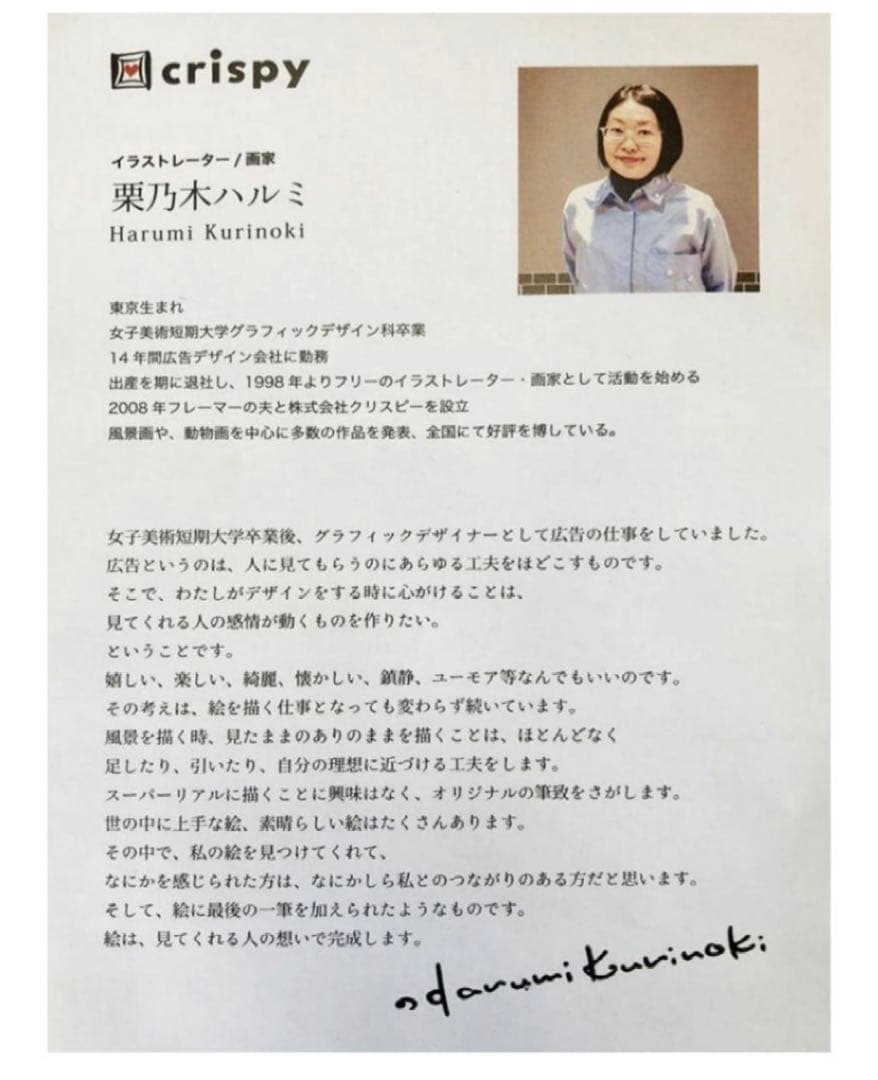 crispy
イラストレーター / 画家
栗乃木ハルミ
Harumi Kurinoki
東京生まれ
女子美術短期大学グラフィックデザイン科卒業
14 年間広告デザイン会社に勤務
出産を期に退社し、1998 年よりフリーのイラストレーター・画家として活動を始める
2008 年フレーマーの夫と株式会社クリスピーを設立
風景画や、動物画を中心に多数の作品を発表、全国にて好評を博している。
女子美術短期大学卒業後、グラフィックデザイナーとして広告の仕事をしていました。
広告というのは、人に見てもらうのにあらゆる工夫をほどこすものです。
そこで、わたしがデザインをする時に心がけることは、
見てくれる人の感情が動くものを作りたい。
ということです。
嬉しい、楽しい、綺麗、懐かしい、鎮静、ユーモア等なんでもいいのです。
その考えは、絵を描く仕事となっても変わらず続いています。
風景を描く時、見たままのありのままを描くことは、ほとんどなく
足したり、引いたり、自分の理想に近づける工夫をします。
スーパーリアルに描くことに興味はなく、オリジナルの筆致をさがします。
世の中に上手な絵、素晴らしい絵はたくさんあります。
その中で、私の絵を見つけてくれて、
なにかを感じられた方は、なにかしら私とのつながりのある方だと思います。
そして、絵に最後の一筆を加えられたようなものです。
絵は、見てくれる人の想いで完成します。
Harumi Kurinoki